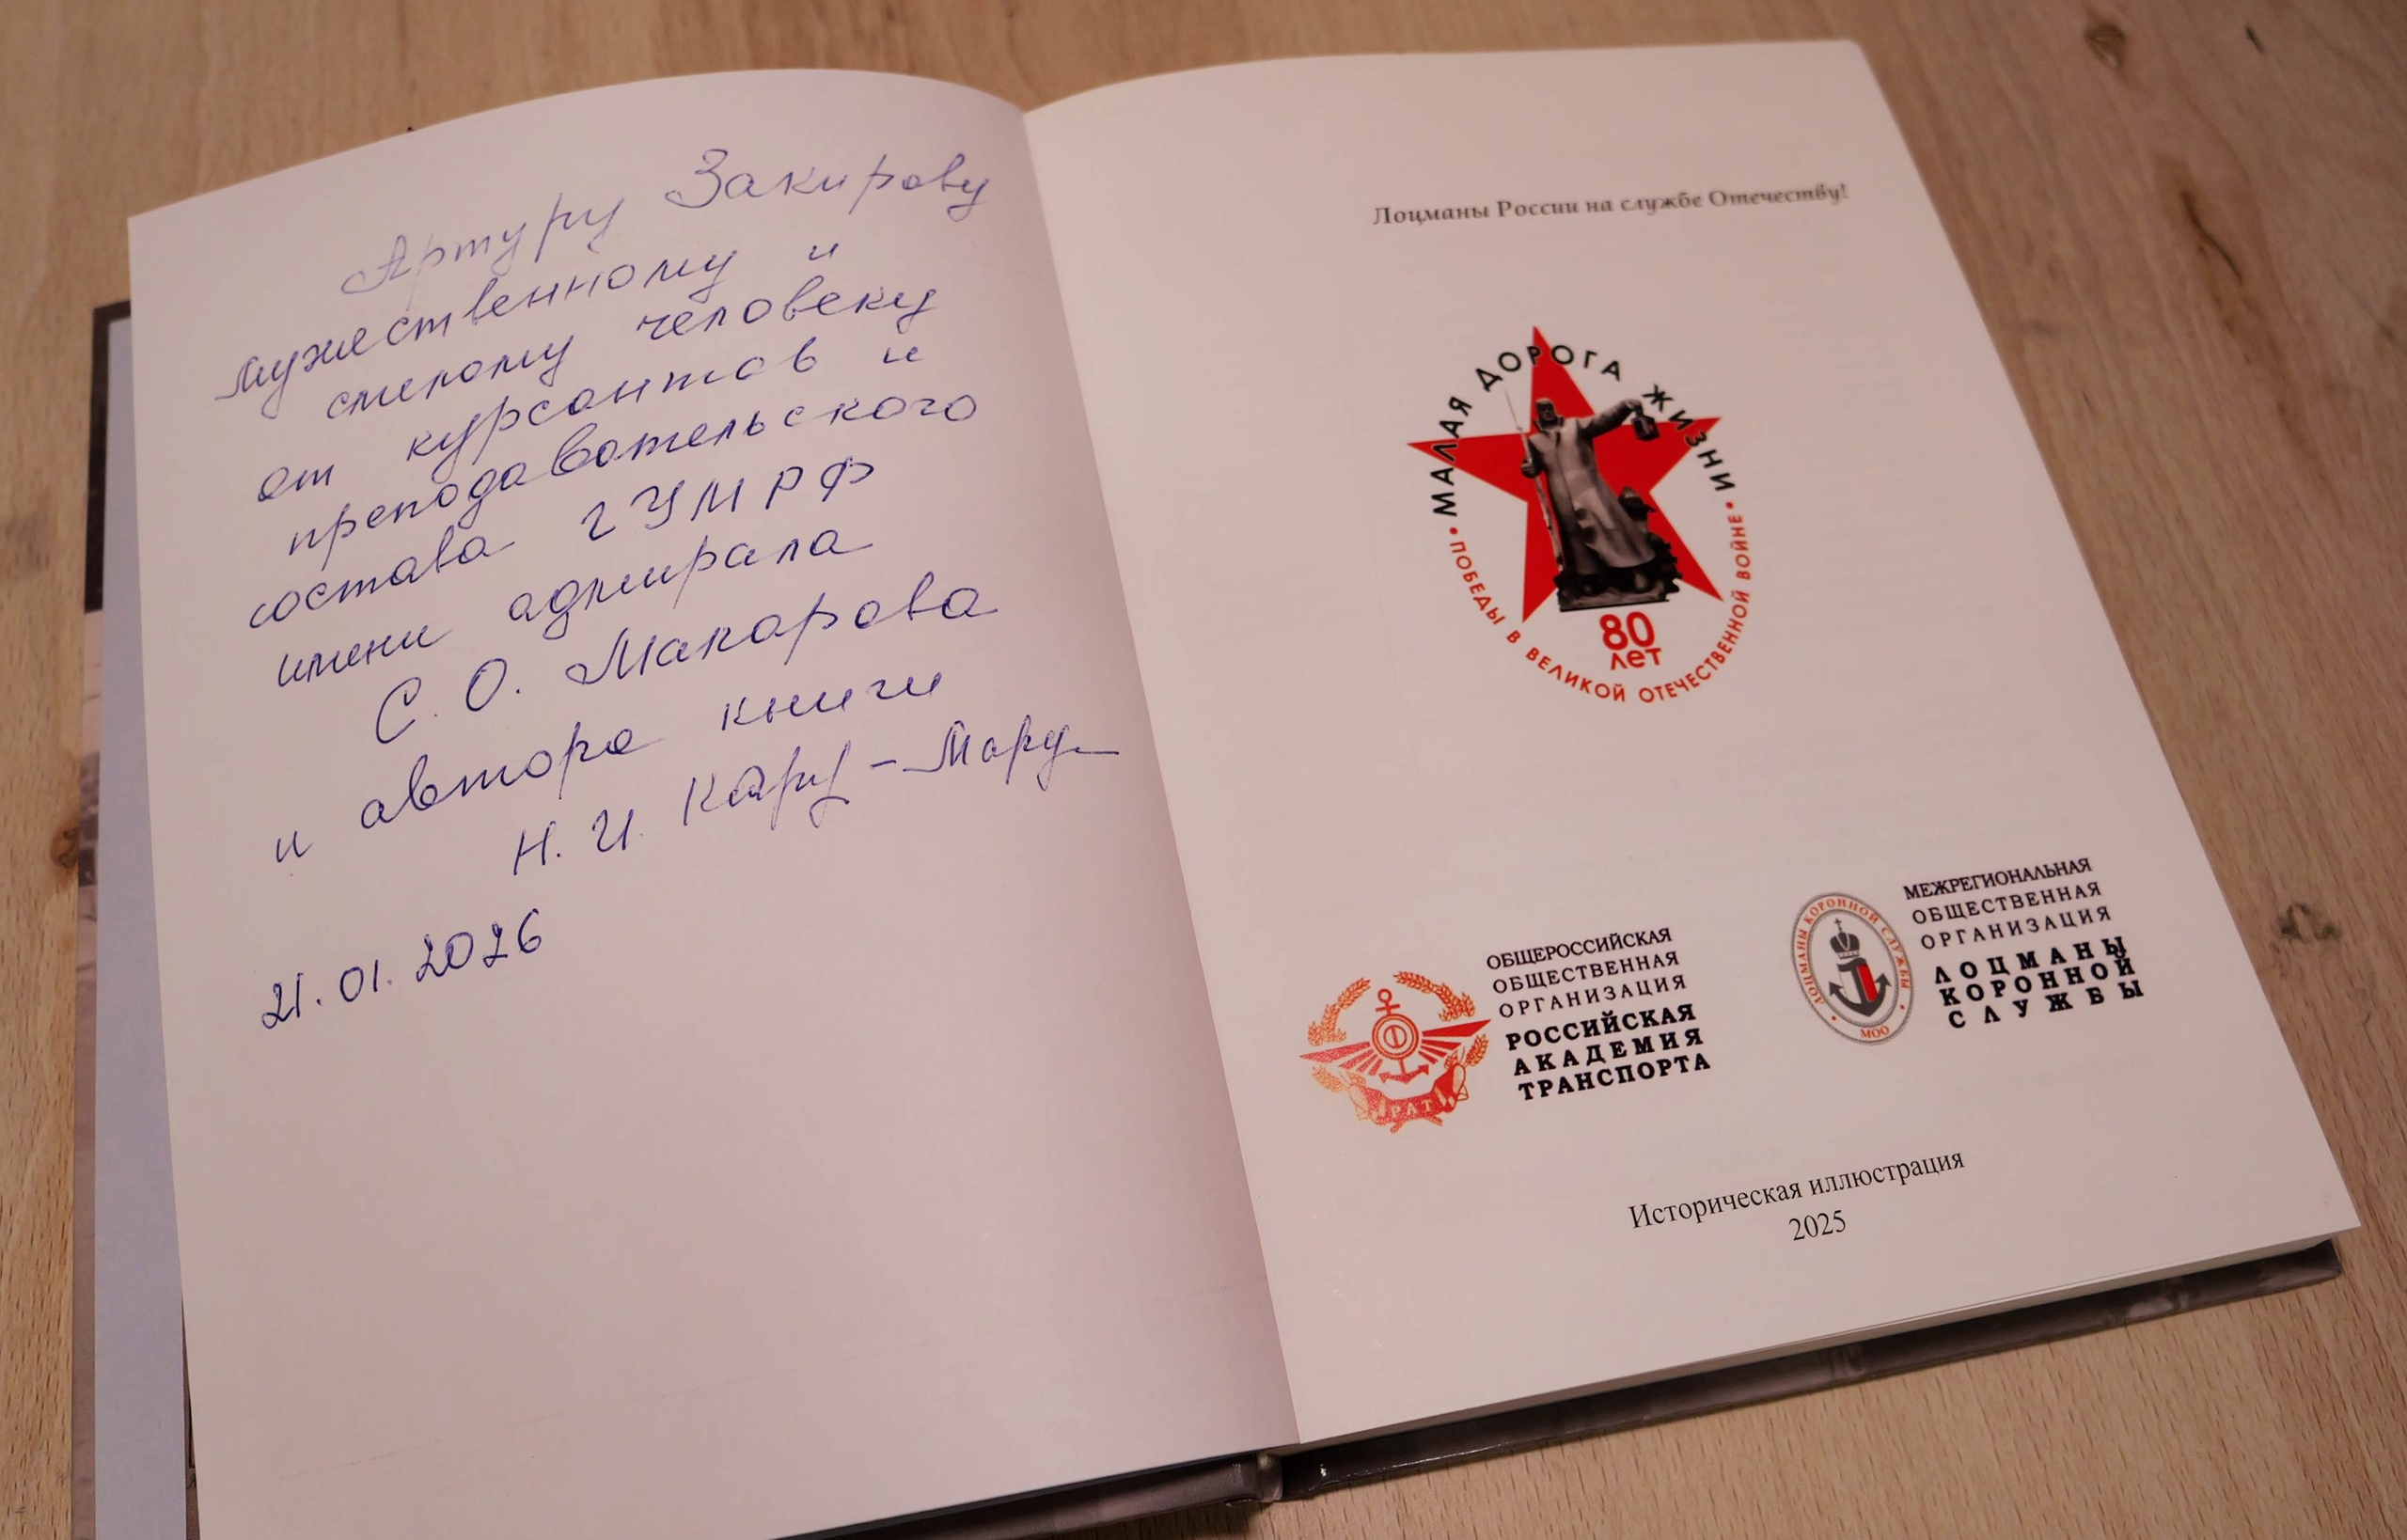 Артуру Закирову
мужественному и
смелому человеку
от курсантов и
преподавательского
состава ГУМРФ
имени адмирала
С. О. Макарова
и автора книги
Н. И.
21.01.2026
Лоцманы России на службе Отечеству!
• МАЛАЯ ДОРОГА ЖИЗНИ •
ПОБЕДЫ В ВЕЛИКОЙ ОТЕЧЕСТВЕННОЙ ВОЙНЕ
80
лет
ОБЩЕРОССИЙСКАЯ
ОБЩЕСТВЕННАЯ
ОРГАНИЗАЦИЯ
РОССИЙСКАЯ
АКАДЕМИЯ
ТРАНСПОРТА
РАТ
МЕЖРЕГИОНАЛЬНАЯ
ОБЩЕСТВЕННАЯ
ОРГАНИЗАЦИЯ
ЛОЦМАНЫ
КОРОННОЙ
СЛУЖБЫ
ЛОЦМАНЫ КОРОННОЙ СЛУЖБЫ
МОО
Историческая иллюстрация
2025